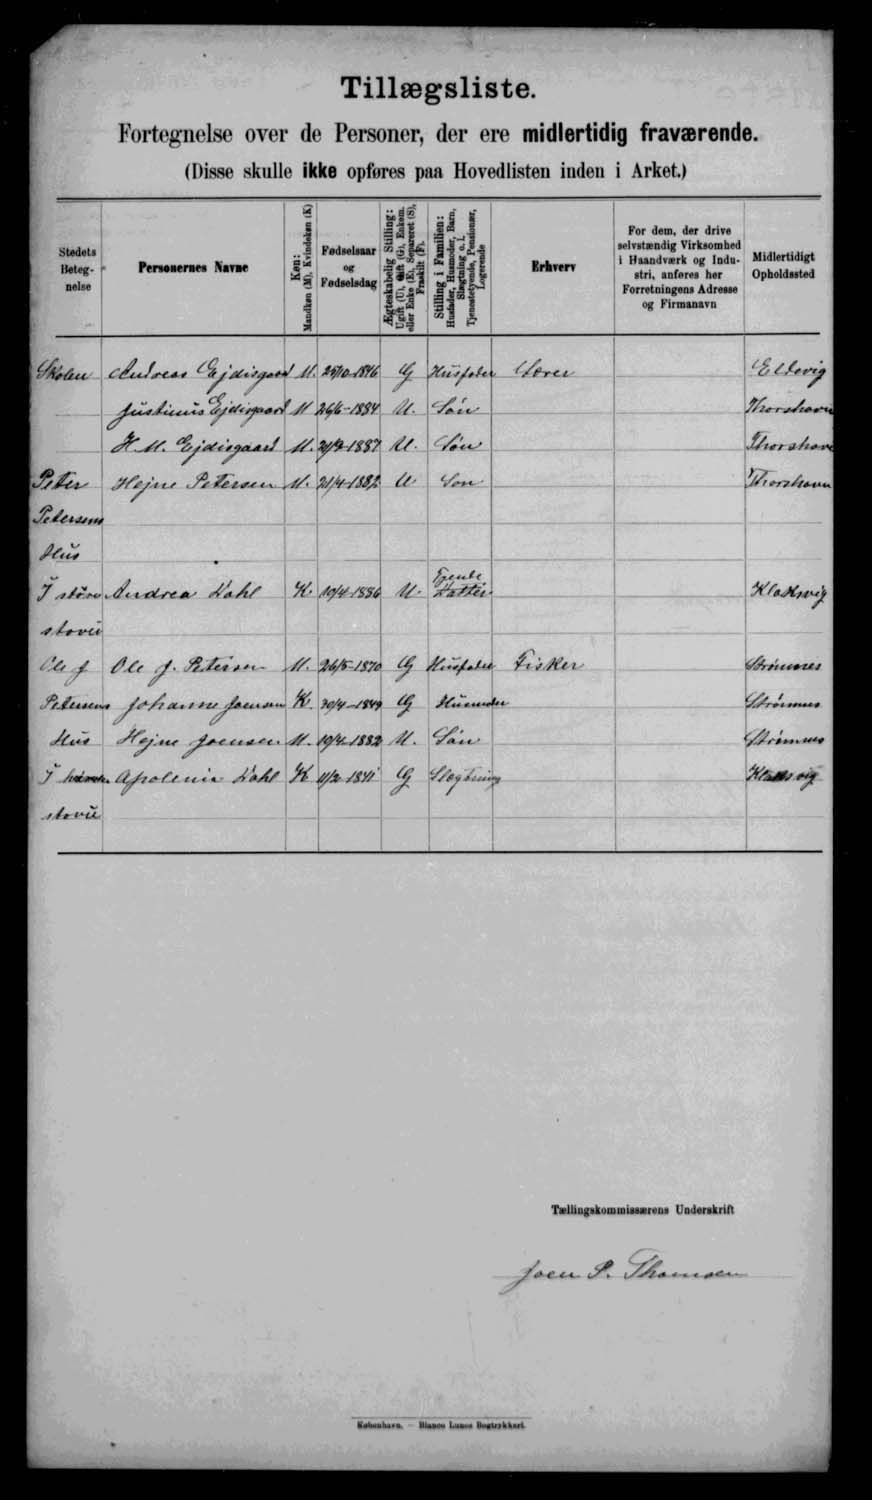 Tillægsliste.
Fortegnelse over de Personer, der ere midlertidig fraværende.
(Disse skulle ikke opføres paa Hovedlisten inden i Arket.)
Stedets Betegnelse
Personernes Navne
Køn: Mandkøn (M), Kvindekøn (K)
Fødselsaar og Fødselsdag
Ægteskabelig Stilling: Ugift (U), Gift (G), Enkem. eller Enke (E), Separeret (S), Fraskilt (F).
Stilling i Familien: Husfader, Husmoder, Barn, Slægtning o. l. Tjenestetyende, Pensionær, Logerende
Erhverv
For dem, der drive selvstændig Virksomhed i Haandværk og Industri, anføres her Forretningens Adresse og Firmanavn
Midlertidigt Opholdssted
Skolen Andreas Ejdisgaard M. 1846 G Husfader Lærer Eldevig
Justinus Ejdisgaard M 26/6-1884 U. Søn Thorshavn
H. M. Ejdisgaard M. 1887 U. Søn Thorshavn
Peter Hejne Petersen M. 21/4-1882 U Søn Thorshavn
Petersens
Hus
I støre Andrea Dahl K 10/4-1886 U. Egende Datter Klaksvig
stovu
Ole J Ole J. Petersen M. 26/5-1870 G Husfader Fisker Strømnes
Petersens Johanne Joensen K. 30/4-1849 G Husmoder Strømnes
Hus Hejne Joensen M. 10/4-1882 U. Søn Strømnes
I Apolenia Dahl K 11/2-1841 G Slægtning Klaksvig
stovu
Tællingskommissærens Underskrift
Joen P. Thomsen
København. — Bianco Lunos Bogtrykkeri.